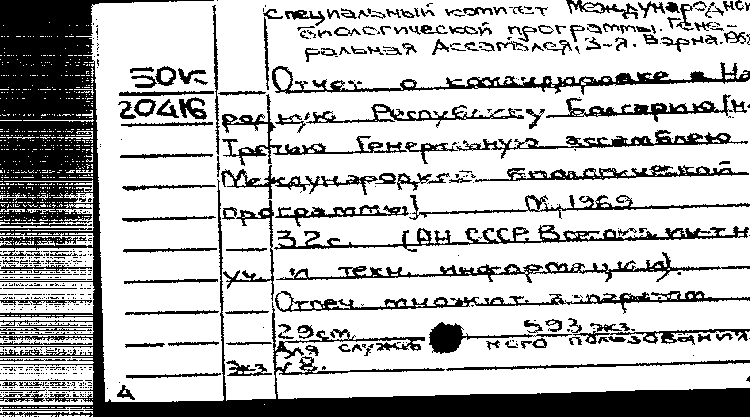 Специальный комитет Международной
биологической программы. Гене-
ральная Ассамблея, 3-я. Варна. 1968
50К Отчет о командировке в На
20416 родную Республику Болгарию [на
Третью Генеральную ассамблею
Международной биологической
программы]. М., 1969
32с. (АН СССР. Всесоюз. ин-т н
уч. и техн. информации).
Отпеч. множит. аппаратом.
29см. 593 экз.
Для служеб ного пользования
Экз. 8.
А